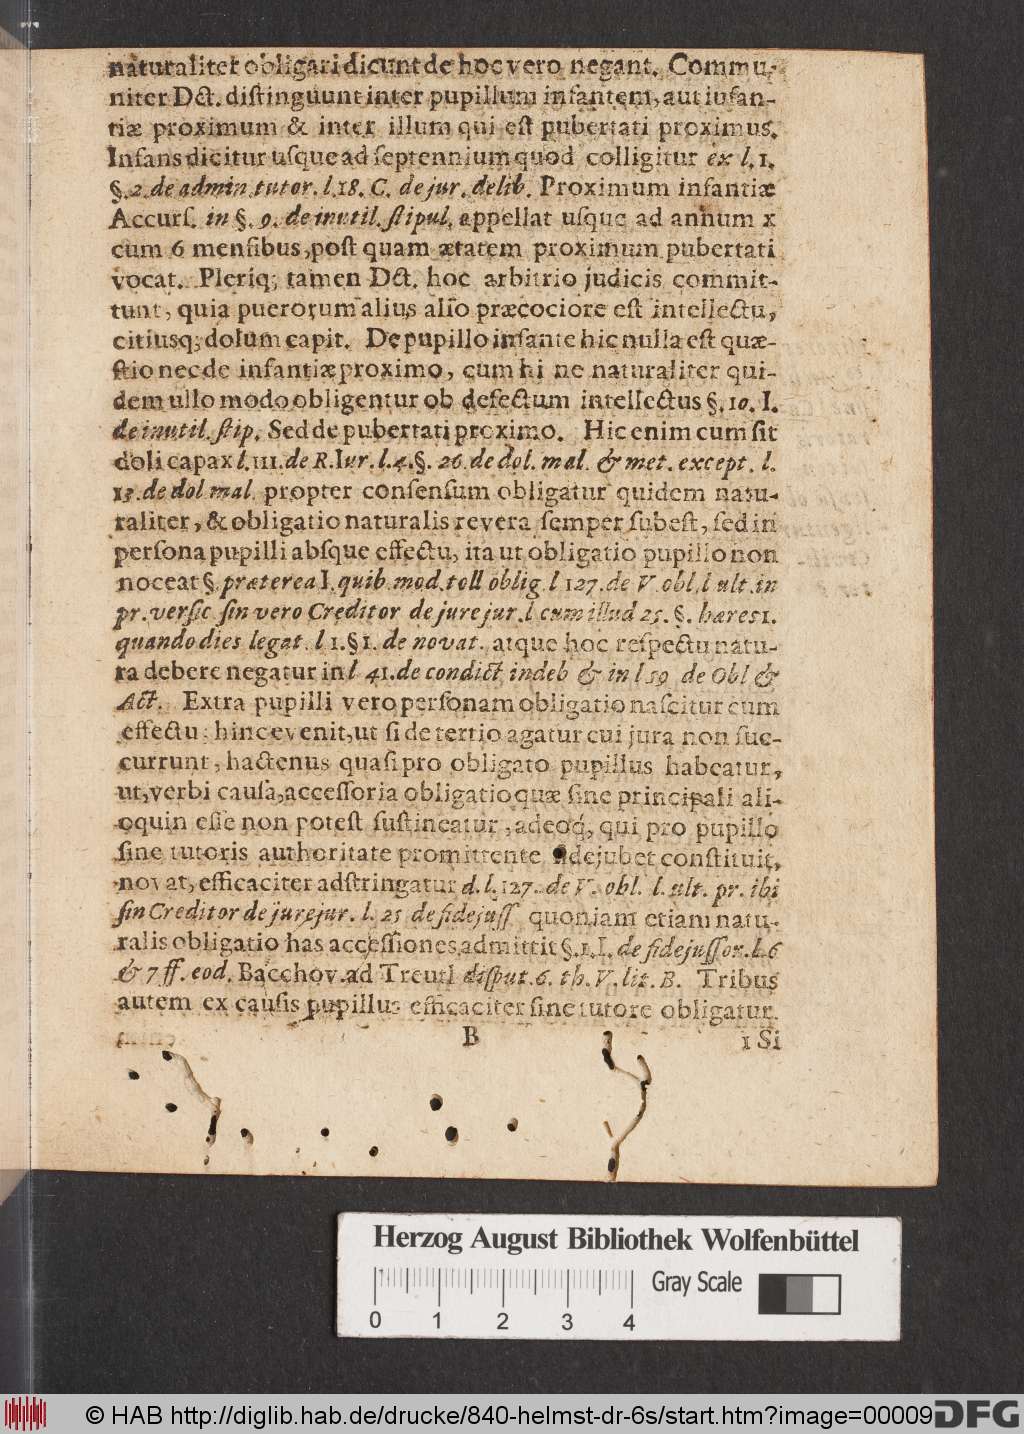 naturaliter obligari dicunt de hoc vero negant. Commu-
niter Dct. distinguunt inter pupillum infantem, aut iufan-
tiæ proximum & inter illum qui est pubertati proximus.
Infans dicitur usque ad septennium quod colligitur ex l. 1.
§. 2. de admin. tutor. l. 18. C. de jur. delib. Proximum infantiæ
Accurs. in §. 9. de inutil. stipul. appellat usque ad annum x
cum 6 mensibus, post quam ætatem proximum pubertati
vocat. Pleriq; tamen Dct. hoc arbitrio judicis commit-
tunt, quia puerorum alius alio præcociore est intellectu,
citiusq; dolum capit. De pupillo infante hic nulla est quæ-
stio nec de infantiæ proximo, cum hi ne naturaliter qui-
dem ullo modo obligentur ob defectum intellectus §. 10. I.
de inutil. stip. Sed de pubertati proximo. Hic enim cum sit
doli capax l. 111. de R. Iur. l. 4. §. 26. de dol. mal. & met. except. l.
13. de dol mal. propter consensum obligatur quidem natu-
raliter, & obligatio naturalis revera semper subest, sed in
persona pupilli absque effectu, ita ut obligatio pupillo non
noceat §. præterea I. quib. mod. toll oblig. l 127. de V. obl. l ult. in
pr. versic sin vero Creditor de jure jur. l cum illud 25. §. hæres 1.
quando dies legat. l 1. §1. de novat. atque hoc respectu natu-
ra debere negatur in l 41. de condict. indeb & in l 59 de Obl &
Act. Extra pupilli vero personam obligatio nascitur cum
effectu: hinc evenit, ut si de tertio agatur cui jura non suc-
currunt, hactenus quasi pro obligato pupillus habeatur,
ut, verbi causa, accessoria obligatio quæ sine principali ali-
oquin esse non potest sustineatur, adeoq́, qui pro pupillo
sine tutoris authoritate promittente fidejubet constituit,
novat, efficaciter adstringatur d. l. 127. de V. obl. l. ult. pr. ibi
sin Creditor de jurejur. l. 25 de fidejuss quoniam etiam natu-
ralis obligatio has accessiones admittit §. 1. I. de fidejussor. l. 6
& 7 ff. eod. Bacchov. ad Treutl disput. 6. th. V. lit. B. Tribus
autem ex causis pupillus efficaciter sine tutore obligatur.
B 1 Si
Herzog August Bibliothek Wolfenbüttel
Gray Scale
0 1 2 3 4
© HAB http://diglib.hab.de/drucke/840-helmst-dr-6s/start.htm?image=00009
DFG